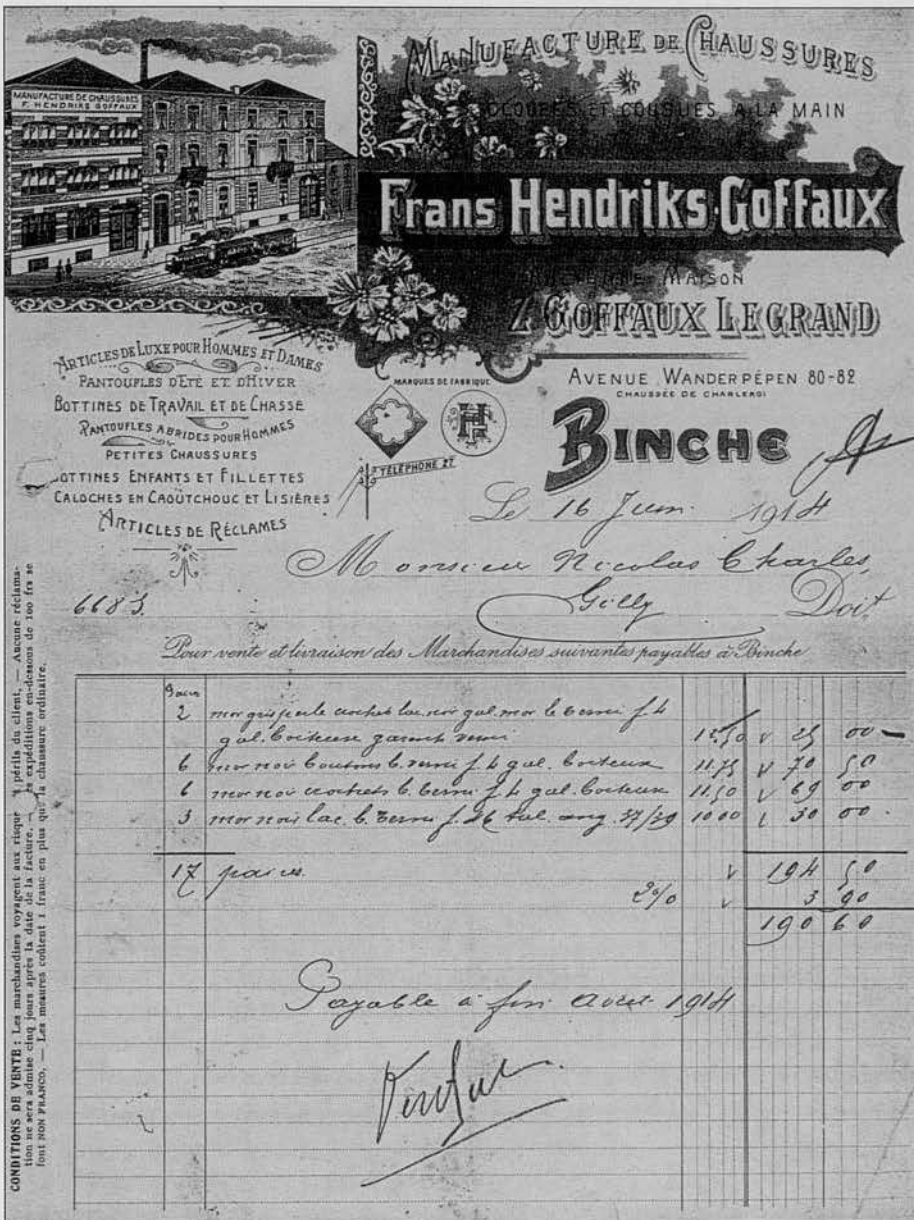 MANUFACTURE DE CHAUSSURES
CLOUÉES ET COUSUES A LA MAIN
MANUFACTURE DE CHAUSSURES
F. HENDRIKS GOFFAUX
Frans Hendriks-Goffaux
MAISON
Z GOFFAUX LEGRAND
AVENUE WANDERPÉPEN 80-82
CHAUSSÉE DE CHARLEROI
BINCHE
ARTICLES DE LUXE POUR HOMMES ET DAMES
PANTOUFLES D'ÉTÉ ET D'HIVER
BOTTINES DE TRAVAIL ET DE CHASSE
PANTOUFLES A BRIDES POUR HOMMES
PETITES CHAUSSURES
BOTTINES ENFANTS ET FILLETTES
CALOCHES EN CAOUTCHOUC ET LISIÈRES
ARTICLES DE RÉCLAMES
MARQUES DE FABRIQUE
TÉLÉPHONE 27
Le 16 Juin 1914
Monsieur Nicolas Charles,
6683. Gilly Doit
Pour vente et livraison des Marchandises suivantes payables à Binche
2 mor gris perle crochet lac. noir gal. mor b. verni f. 4
gal. boiteux verni 12.50 25 00
6 mor noir boutons b. verni f. 4 gal. boiteux 11.75 70 50
6 mor noir crochets b. verni f. 4 gal. boiteux 11.50 69 00
3 mor noir lac. b. verni f. 26 tal. ang. 37/39 10 00 30 00
17 paires 194 50
2% 3 90
190 60
Payable à fin Août 1914
CONDITIONS DE VENTE : Les marchandises voyagent aux risque périls du client. — Aucune réclama-
tion ne sera admise cinq jours après la date de la facture. — es expéditions en-dessous de 100 frs se
font NON FRANCO. — Les mesures coûtent 1 franc en plus que la chaussure ordinaire.